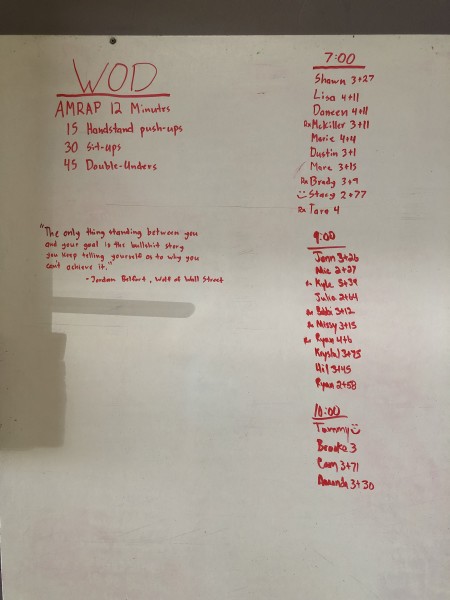 WOD
AMRAP 12 Minutes
15 Handstand push-ups
30 Sit-ups
45 Double-Unders
"The only thing standing between you
and your goal is the bullshit story
you keep telling yourself as to why you
can't achieve it."
-Jordan Belfort, Wolf of Wall Street
7:00
Shawn 3+27
Lisa 4+11
Doreen 4+11
Rx McKiller 3+11
Marie 4+4
Dustin 3+1
Marc 3+15
Rx Brady 3+9
Stacy 2+77
Rx Tara 4
9:00
Jenn 3+26
Mic 2+27
Rx Kyle 5+39
Julie 2+64
Rx Bobbi 3+12
Rx Missy 3+15
Rx Ryan 4+6
Krystal 3+75
Hil 3+45
Ryan 2+68
10:00
Tammy
Brooke 3
Cam 3+71
Amanda 3+30